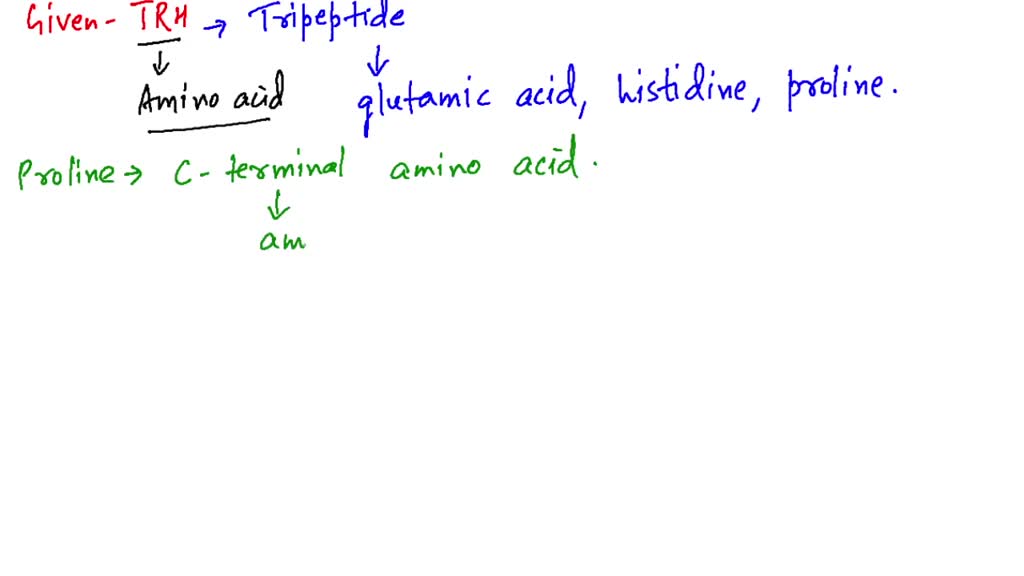 Given - TRH → Tripeptide
↓ ↓
Amino acid glutamic acid, histidine, proline.
Proline → C - terminal amino acid.
↓
am